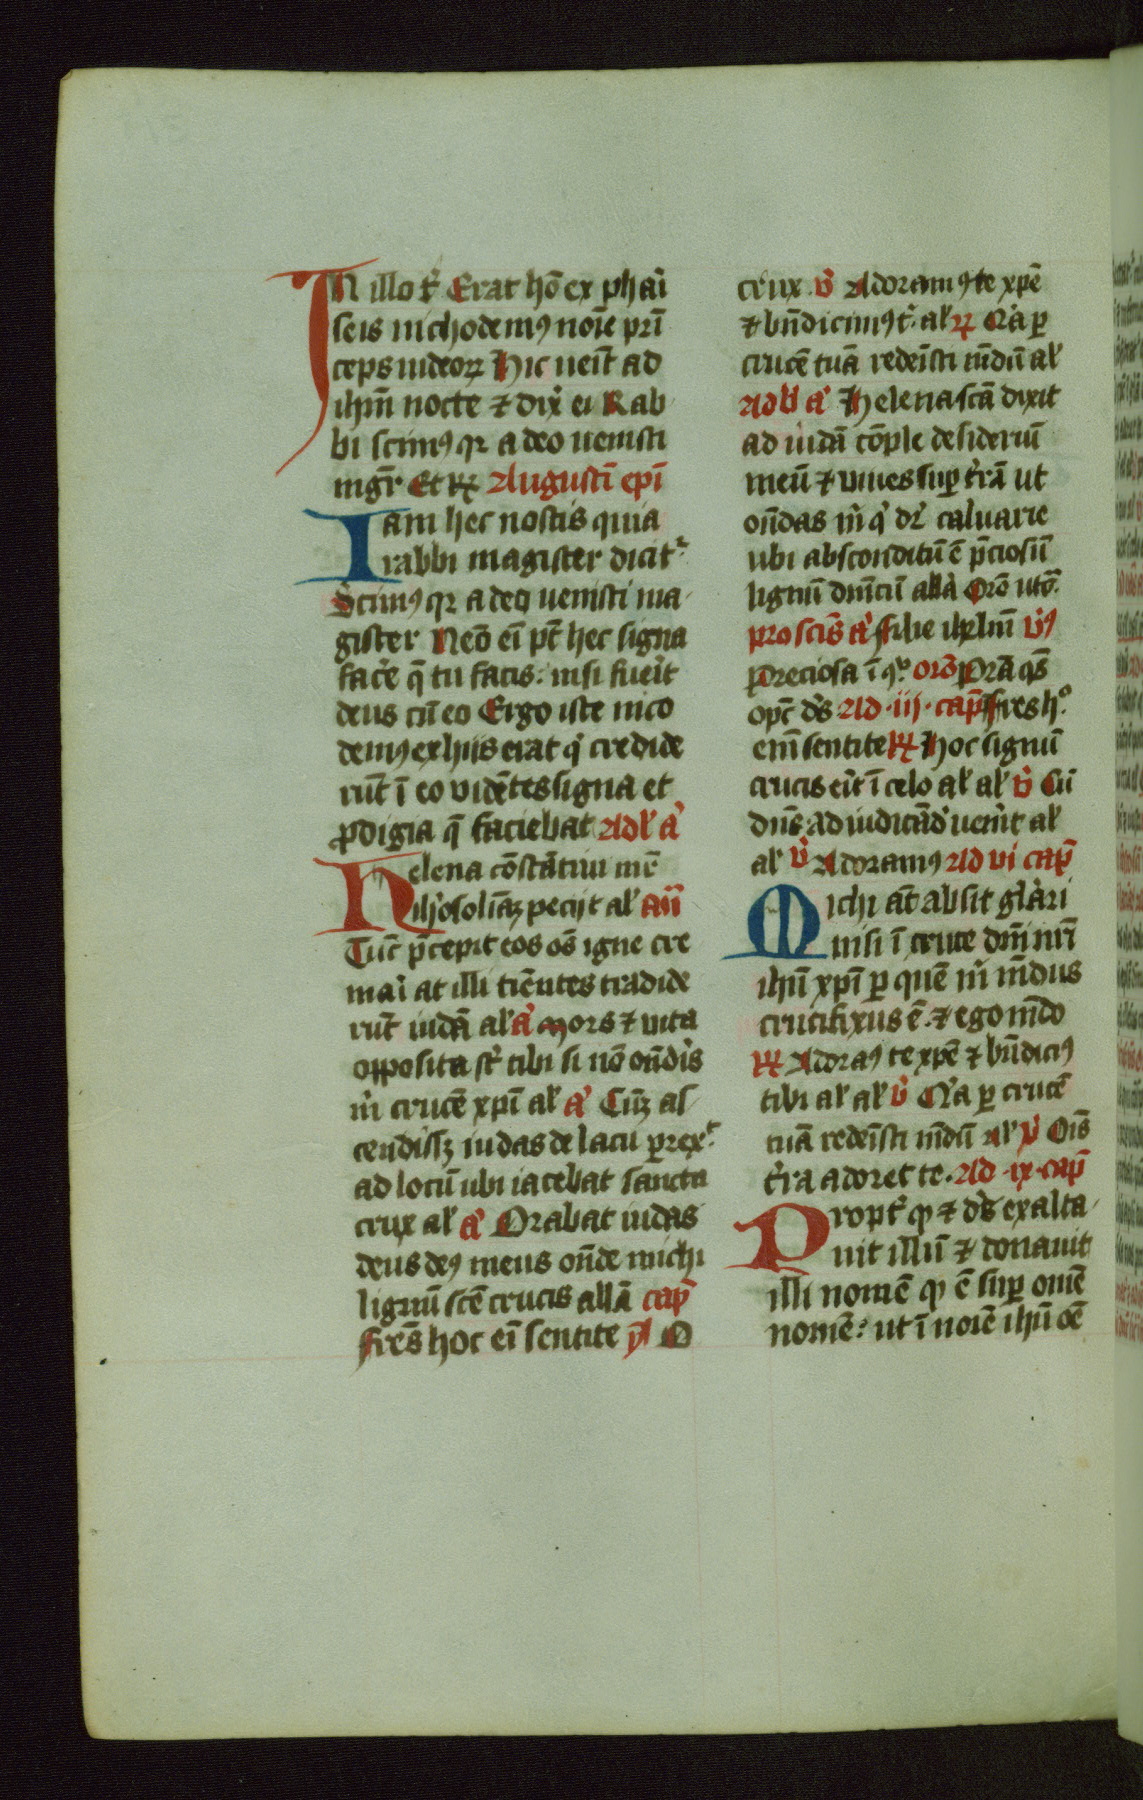 In illo t̉ Erat hō ex phaı̉
seis nichodemꝰ noı̄e prı̄
ceps iudeoꝝ Hic uenı̄t ad
ihm̄ nocte ⁊ dix̉ ei Rab
bi scimꝰ qꝛ a deo uenisti
mgr̄ Et
Augustı̄ epı̄
Iam hec nostis quia
rabbi magister dicit᷑
Scimꝰ qꝛ a deo uenisti ma
gister Neō eı̄ pt̄ hec signa
fac̉e q̄ tu facis: nisi fuer̉it
deus cū eo Ergo iste nico
demꝰ ex hijs erat q̉ credide
rūt ı̄ eo vidētes signa et
ꝓdigia q̄ faciebat Ad l̉ ả
Helena cōstātini mr̄
ih̉osolı̄aꝫ pecijt al̉ añ
Tūc p̄cepit eos oı̄s igne cre
mar̉i at illi tīentes tradide
rūt iudā al̉ ả Mors ⁊ uita
opposita st̉ tibi si nō on̄der̉is
m̉ crucē xpı̄ al̉ ả Cūꝫ as
cendissꝫ iudas de lacu ꝑrex̉t
ad locū ubi iacebat sancta
crux al̉ ả Orabat iudas
deus deꝰ meus on̄de michi
lignū scē crucis allā cap̄
frēs hoc eı̄ sentite O
crux v̉ Adoramꝰ te xpē
⁊ bn̄dicimꝰ t̉ al̉ ꝶ Q̉a ꝑ
crucē tuā redeı̄sti mūdū al̉
ả Helena scā dixit
ad iudā cōple desideriū
meū ⁊ viues suꝑ t̉rā ut
on̄das m̉ q̉ dr̉ caluarie
ubi absconditū ē p̄ciosū
lignū dnı̄cū allā Orō ut
pro scı̄s ả filie ihrlm̄ v̉ꝰ
Preciosa ı̄ Prā qs̄
opc̄ ds̄ Ad ·iij· cap̄ fres h̉
enı̄ sentite Hoc signū
crucis er̉it ı̄ celo al̉ al̉ v̉ Cū
dn̄s ad iudicād̉ uener̉it al̉
al̉ v̉ Adoramꝰ Ad vi cap̄
Michi āt absit glar̉i
nisi ı̄ cruce dm̄ nrı̄
ihū xpı̄ ꝑ quē m̉ mūdus
crucifixus ē ⁊ ego mūdo
Adoraꝰ te xpē ⁊ bn̄diciꝰ
tibi al̉ al̉ v̉ Q̉a ꝑ crucē
tuā redeı̄sti mūdū al̉ v̉ Oı̄s
t̉ra adoret te. Ad ·ix· cap̄
Propt̉ qꝫ ⁊ ds̄ exalta
uit illū ⁊ donauit
illi nomē qꝫ ē suꝑ omē
nomē: ut ı̄ noı̄e ihū oē